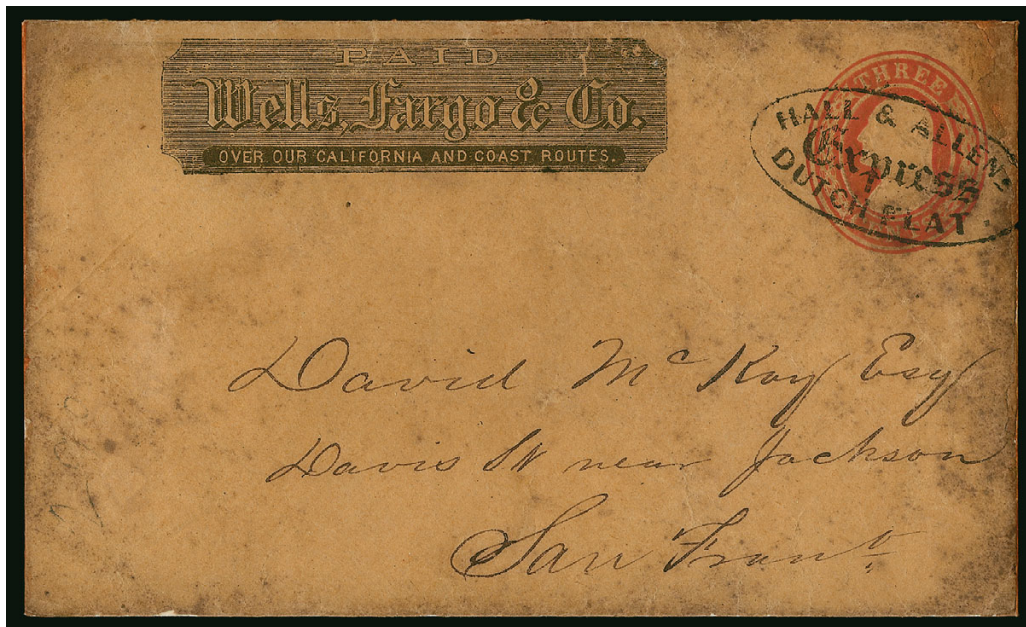 PAID
Wells, Fargo & Co.
OVER OUR CALIFORNIA AND COAST ROUTES.
THREE
HALL & ALLEN'S
Express
DUTCH FLAT.
David McKay Esq
Davis St near Jackson
San Franco